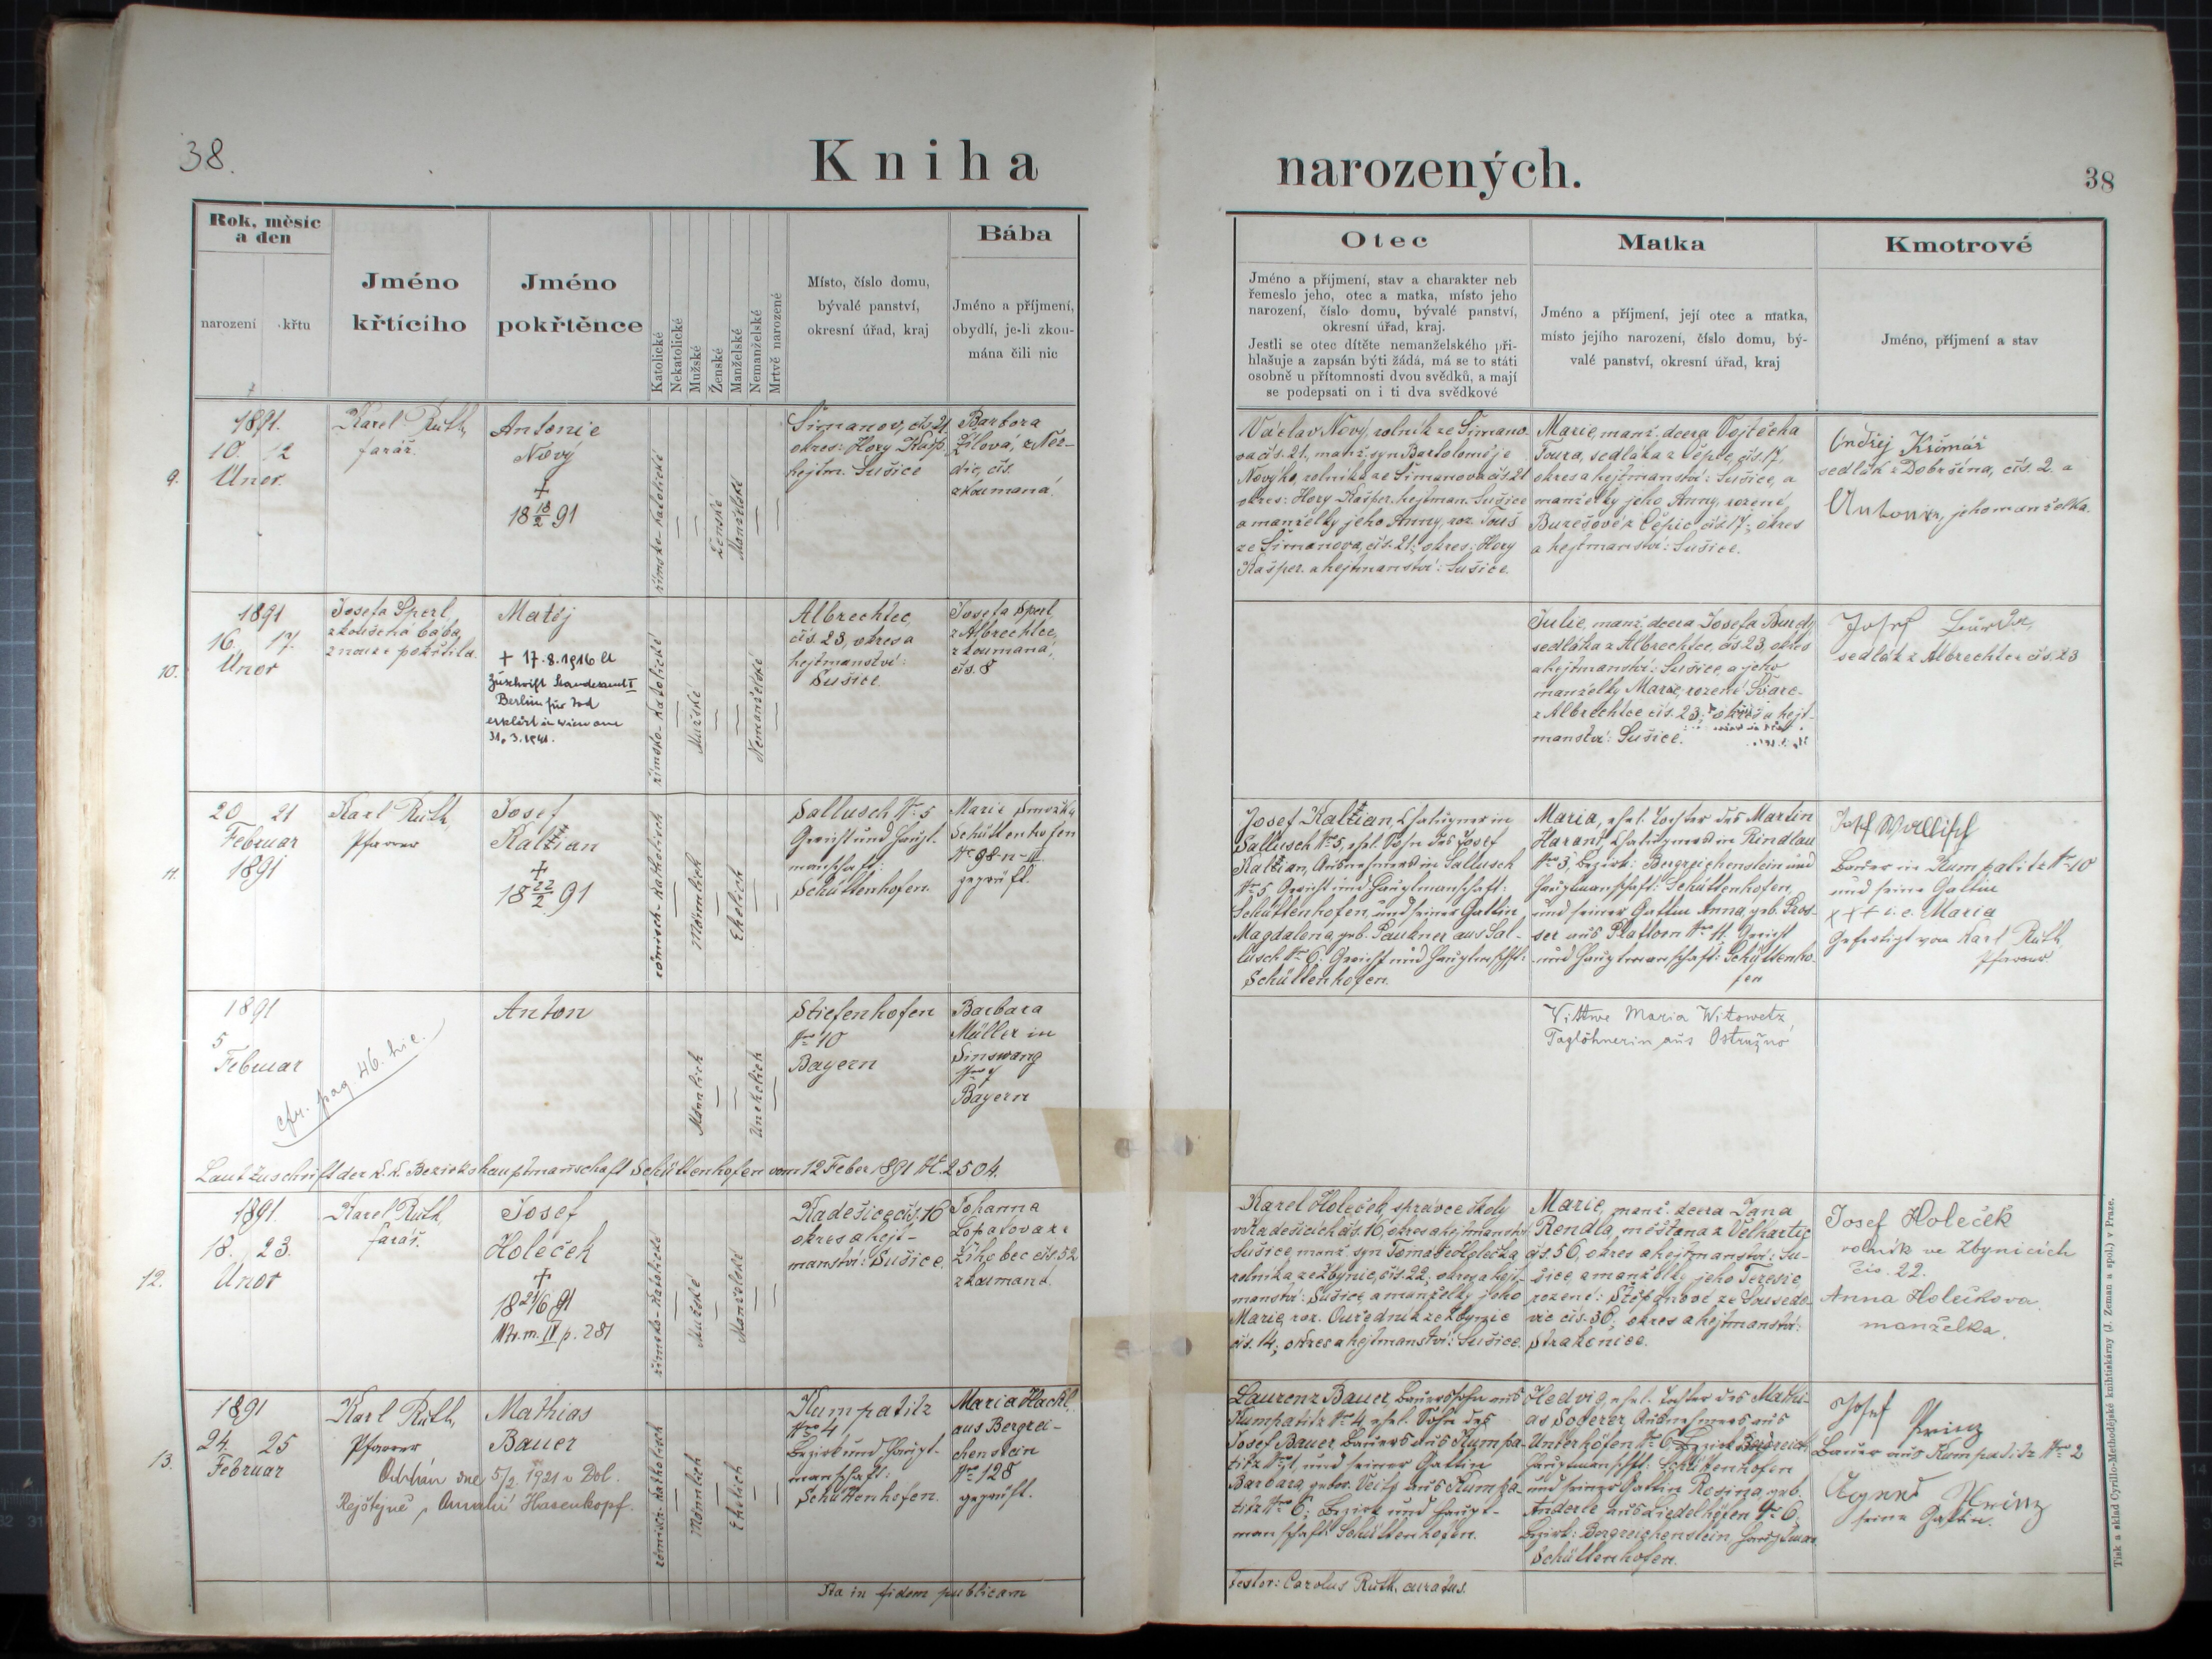 38.
Kniha
narozených.
38
Rok, měsíc
a den
narození
křtu
Jméno
křtícího
Jméno
pokřtěnce
Katolické
Nekatolické
Mužské
Ženské
Manželské
Nemanželské
Mrtvě narozené
Místo, číslo domu,
bývalé panství,
okresní úřad, kraj
Bába
Jméno a příjmení,
obydlí, je-li zkou-
mána čili nic
Otec
Jméno a příjmení, stav a charakter neb
řemeslo jeho, otec a matka, místo jeho
narození, číslo domu, bývalé panství,
okresní úřad, kraj.
Jestli se otec dítěte nemanželského při-
hlašuje a zapsán býti žádá, má se to státi
osobně u přítomnosti dvou svědků, a mají
se podepsati on i ti dva svědkové
Matka
Jméno a příjmení, její otec a matka,
místo jejího narození, číslo domu, bý-
valé panství, okresní úřad, kraj
Kmotrové
Jméno, příjmení a stav
9.
1891.
10. 12
Únor.
Karel Ruth,
farář.
Antonie
Nový
+
18 18/2 91
římsko-katolické
Ženské
Manželské
Šimanov, čís. 21.
okres: Hory Kašp.
hejtm. Sušice
Barbora
Žílová, z Nez-
dic, čís.
zkoumaná.
Václav Nový, rolník ze Šimano-
va čís. 21, manž. syn Bartoloměje
Nového, rolníka ze Šimanova čís. 21
okres: Hory Kašper. hejtman. Sušice
a manželky jeho Anny, roz. Touš
ze Šimanova, čís. 21; okres: Hory
Kašper. a hejtmanství: Sušice.
Marie, manž. dcera Vojtěcha
Toura, sedláka z Čépic, čís. 17,
okres a hejtmanství: Sušice, a
manželky jeho, Anny, rozené
Burešové z Čépic čís. 17; okres
a hejtmanství: Sušice.
Ondřej
sedlák z Dobršína, čís. 2. a
jeho manželka.
10.
1891
16. 17.
Únor
Josefa Sperl,
zkoušená bába,
z nouze pokřtila.
Matěj
+ 17.8.1916 lt
Zuschrift Standesamt I
Berlin für tod
erklärt in Wien am
31.3.1941.
římsko-katolické
Mužské
Nemanželské
Albrechtec,
čís. 23, okres a
hejtmanství:
Sušice.
Josefa Sperl,
z Albrechtce,
zkoumaná,
čís. 8
Julie, manž. dcera Josefa
sedláka z Albrechtce, čís. 23, okres
a hejtmanství: Sušice, a jeho
manželky Marie, rozené
z Albrechtce čís. 23; okres a hejt-
manství: Sušice.
Josef
sedlák z Albrechtce čís. 23
11.
20 21
Februar
1891
Karl Ruth,
Pfarrer
Josef
Kaltian
+
18 22/2 91
römisch-katholisch
Männlich
Ehelich
Sallusch Nr. 5
Gericht und Haupt-
manschaft:
Schüttenhofen.
Marie
Schüttenhofen
Nr. 98 n-II
geprüft.
Josef Kaltian, Chalupner in
Sallusch Nr. 5, ehel. Sohn des Josef
Kaltian, Ausnehmers in Sallusch
Nr. 5, Gericht und Hauptmanschaft:
Schüttenhofen, und seiner Gattin
Magdalena, geb. Paukner aus Sal-
lusch Nr. 6; Gericht und Hauptmschft:
Schüttenhofen.
Maria, ehel. Tochter des Martin
Harant, Chalupners in Rindlau
Nr. 3, Bezirk: Bergreichenstein und
Hauptmanschaft: Schüttenhofen,
und seiner Gattin Anna, geb. Pros-
ser aus Platlorn Nr. 11: Gericht
und Hauptmanschaft: Schüttenho-
fen
Josef Wallisch
Bauer in Kumpatitz Nr. 10
und seine Gattin
xx+ i.e. Maria
Gefertigt von Karl Ruth,
Pfarrer
1891
5
Februar
cfr. pag. 46. hic.
Anton
Männlich
Unehelich
Stiefenhofen
Nr. 10
Bayern
Barbara
Müller in
Sinswang
Bayern
Wittwe Maria Witowetz,
Taglöhnerin aus Ostružno
Laut Zuschrift der k.k. Bezirkshauptmannschaft Schüttenhofen vom 12 Feber 1891 N. 2504.
12.
1891.
18. 23.
Únor
Karel Ruth,
farář.
Josef
Holeček
+
18 21/6 91
Mtr. m. IV p. 281
římsko-katolické
Mužské
Manželské
Kadešice čís. 16
okres a hejt-
manství: Sušice.
Johanna
Lopatova ze
Žihobec čís. 52
zkoumaná.
Karel Holeček, správce školy
v Kadešicích čís. 16, okres a hejtmanství
Sušice, manž. syn Tomáše Holečka
rolníka ze Zbynic, čís. 22, okres a hejt-
manství: Sušice a manželky jeho
Marie, roz. Ouředník ze Zbynic
čís. 14; okres a hejtmanství: Sušice.
Marie, manž. dcera Jana
Rendla, měšťana z Velhartic
čís. 56, okres a hejtmanství: Su-
šice, a manželky jeho Terezie,
rozené: Štěpánové ze Sousedo-
vic čís. 36; okres a hejtmanství:
Strakonice.
Josef Holeček
rolník ve Zbynicích
čís. 22.
Anna Holečkova,
manželka.
13.
1891
24. 25
Februar
Karl Ruth,
Pfarrer
Mathias
Bauer
Oddán dne 5/2 1921 v Dol.
Rejštejně s Amalií Hasenkopf.
römisch-katholisch
Männlich
Ehelich
Kumpatitz
Nro 4,
Bezirk und Haupt-
manschaft:
Schüttenhofen.
Maria Hackl,
aus Bergrei-
chenstein
Nr. 128
geprüft.
Laurenz Bauer, Bauerssohn aus
Kumpatitz Nr. 4, ehel. Sohn des
Josef Bauer Bauers aus Kumpa-
titz Nr. 4, und seiner Gattin
Barbara, gebor. Veith aus Kumpa-
titz Nr. 6; Bezirk und Haupt-
manschaft Schüttenhofen.
Hedvig, ehel. Tochter des Mathi-
as Soderer, Ausnehmers aus
Unterhöfen Nr. 6, Bezirk Bergreich.
Hauptmanschft: Schüttenhofen
und seiner Gattin Rosina, geb.
Anderle aus Liedelhöfen Nr. 6;
Bezirk: Bergreichenstein,
Schüttenhofen.
Josef Prinz
Bauer aus Kumpatitz Nr. 2
seine Gattin.
Ita in fidem publicam
testor: Carolus Ruth, curatus.
Tisk a sklad Cyrillo-Methodějské knihtiskárny (J. Zeman a spol.) v Praze.